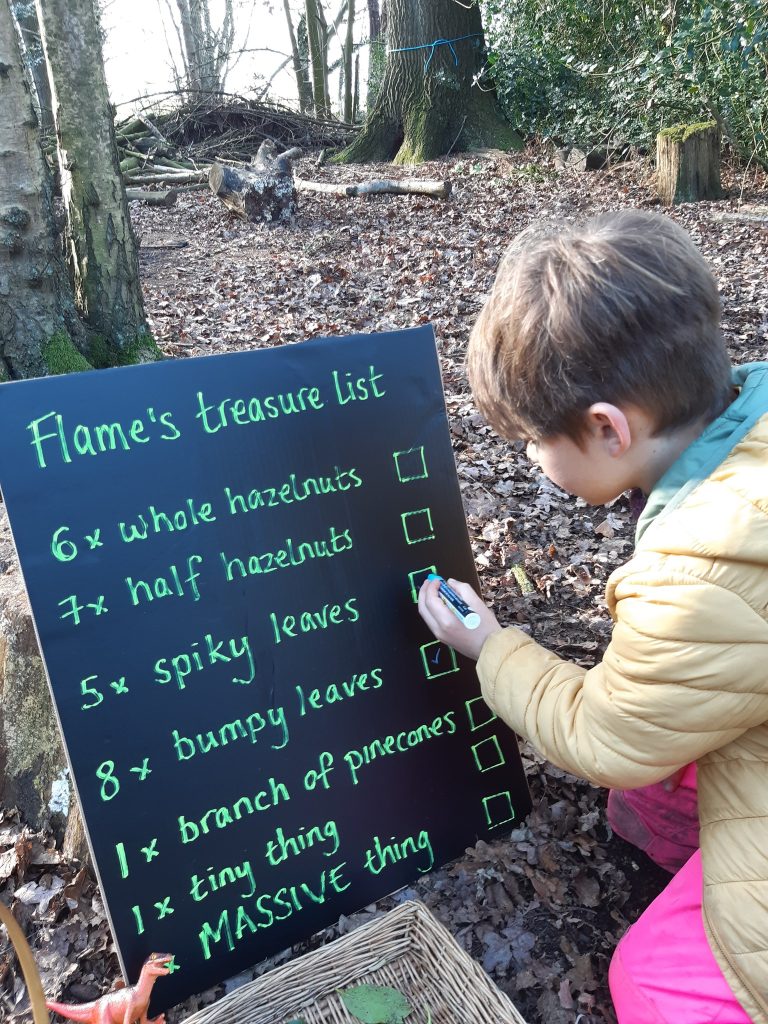 Flame's treasure list
6x whole hazelnuts
7x half hazelnuts
5x spiky leaves
8x bumpy leaves
1x branch of pinecones
1x tiny thing
x MASSIVE thing